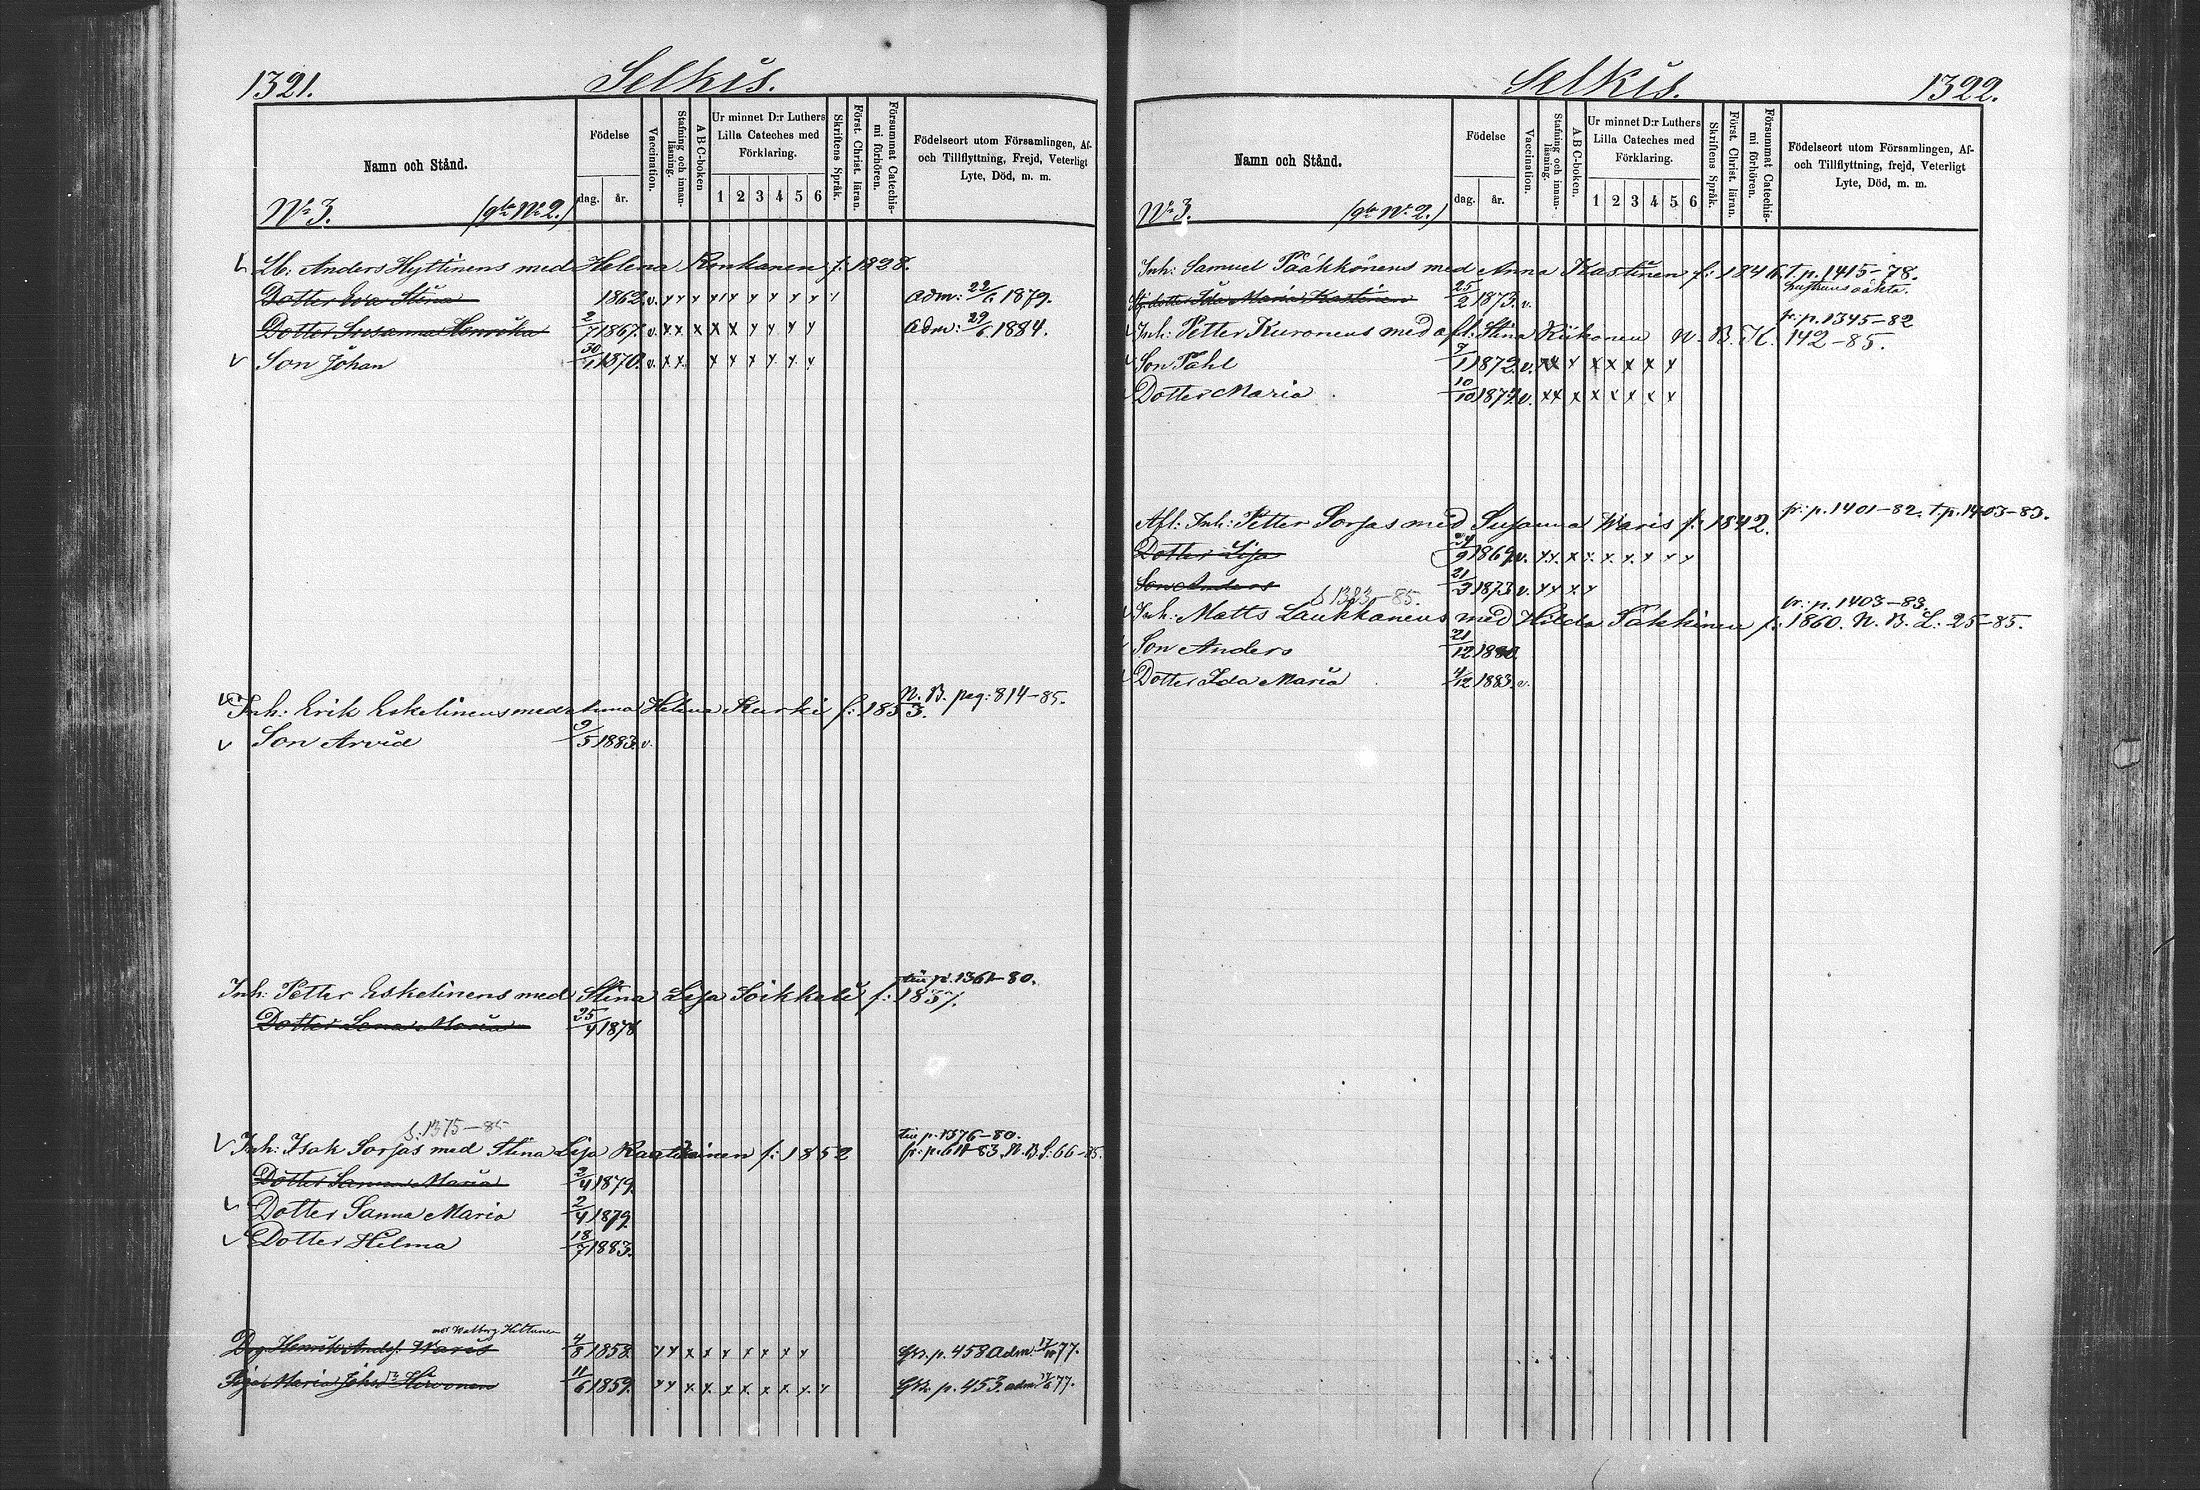 1321.
Selkis.
Namn och Stånd.
Födelse
dag. år.
Vaccination.
Stafning och innanläsning.
A B C-boken
Ur minnet D:r Luthers Lilla Cateches med Förklaring.
1 2 3 4 5 6
Skriftens Språk.
Först. Christ. läran.
Försummat Catechismi förhören.
Födelseort utom Församlingen, Af- och Tillflyttning, Frejd, Veterligt Lyte, Död, m. m.
N:o 3. (gla N:o 2.)
Lb: Anders Hyttinens med Helena Ronkanen f: 1828.
Dotter Eva Stina 1862. v. x x x x x x x x x x Adm: 22/6 1879.
Dotter Susanna Henrika 2/7 1867. v. x x x x x x x x x Adm: 29/6 1884.
Son Johan 30/1 1870. v. x x x x x x x x
N. B. pag: 814-85.
Inh: Erik Eskelinens med Anna Helena Kurki f: 1853.
Son Arvid 9/5 1883. v.
till p. 1361-80.
Inh: Petter Eskelinens med Stina Lisa Soikkeli f: 1857.
Dotter Lena Maria 25/4 1878
S. 1375-85
till p. 1376-80.
Inh: Isak Sorsas med Stina Lisa Raatikainen f: 1852 fr: p. 611-83. N. B. S: 66-85.
Dotter Sanna Maria 2/4 1879.
Dotter Sanna Maria 2/4 1879.
Dotter Hilma 18/7 1883.
med Walborg Hiltunen
Drg Henrik Andsn Waris 4/8 1858. x x x x x x x x x Gb. p. 458 Adm: 77.
Piga Maria Johsdr Hirvonen 11/6 1859. x x x x x x x x x x Gb. p. 453. adm 77.
Selkis.
1322.
Namn och Stånd.
Födelse
dag. år.
Vaccination.
Stafning och innanläsning.
A B C-boken.
Ur minnet D:r Luthers Lilla Cateches med Förklaring.
1 2 3 4 5 6
Skriftens Språk.
Först. Christ. läran.
Försummat Catechismi förhören.
Födelseort utom Församlingen, Af- och Tillflyttning, frejd, Veterligt Lyte, Död, m. m.
N:o 3. (gla N:o 2.)
Inh: Samuel Pääkkönens med Anna Kastinen f: 1846. t. p. 1415-78.
Styfdotter Ida Maria Kastinen 25/2 1873. v. hustruns oäkta.
fr: p. 1345-82
Inh: Petter Kuronens med afl: Stina Kiikonen N. B. K. 142-85.
Son Påhl 7/1 1872. v. x x x x x x x x
Dotter Maria 10/10 1874. v. x x x x x x x x
Afl: Inh: Petter Sorsas med Susanna Waris f: 1842. fr: p. 1401-82. t. p. 1403-83.
Dotter Lisa 24/9 1869. v. x x x x x x x x x
Son Anders 21/3 1873. v. x x x x
S 1383-85.
fr: p. 1403-83.
Inh: Matts Laukkanens med Hilda Pakkinen f: 1860. N. B. L: 25-85.
Son Anders 21/12 1880.
Dotter Ida Maria 4/12 1883. v.